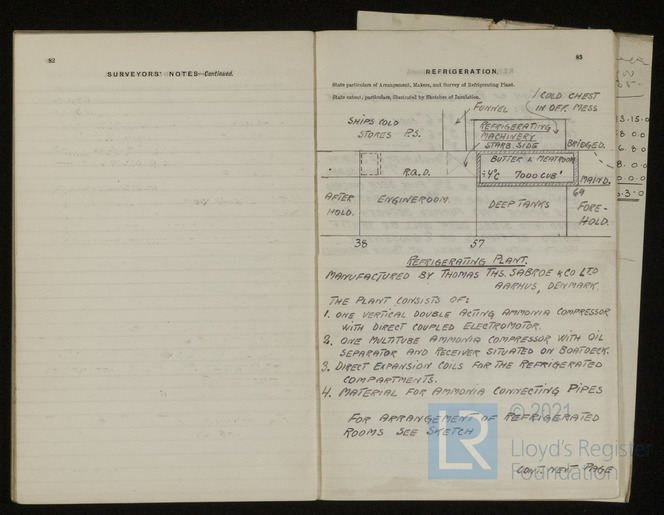 82
SURVEYORS' NOTES—Continued.
83
REFRIGERATION.
State particulars of Arrangement, Makers, and Survey of Refrigerating Plant.
State extent, particulars, illustrated by Sketches of Insulation.
COLD CHEST
IN OFF. MESS
FUNNEL
SHIPS COLD
STORES P.S.
REFRIGERATING
MACHINERY
STARB. SIDE
BRIDGED.
BUTTER & MEATROOM
÷4°C 7000 CUB'
R.Q.D.
MAIND.
AFTER
HOLD.
ENGINEROOM
DEEP TANKS
69
FORE-
HOLD.
38
57
REFRIGERATING PLANT.
MANUFACTURED BY THOMAS THS. SABROE & CO LTD
AARHUS, DENMARK.
THE PLANT CONSISTS OF:
1. ONE VERTICAL DOUBLE ACTING AMMONIA COMPRESSOR
WITH DIRECT COUPLED ELECTROMOTOR.
2. ONE MULTITUBE AMMONIA COMPRESSOR WITH OIL
SEPARATOR AND RECEIVER SITUATED ON BOATDECK.
3. DIRECT EXPANSION COILS FOR THE REFRIGERATED
COMPARTMENTS.
4. MATERIAL FOR AMMONIA CONNECTING PIPES
FOR ARRANGEMENT OF REFRIGERATED
ROOMS SEE SKETCH
CONT. NEXT PAGE
LR
© 2021
Lloyd's Register
Foundation